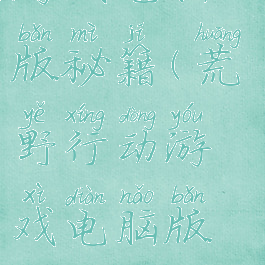 bǎn mì jí huāng
版秘籍(荒
yě xíng dòng yóu
野行动游
xì diàn nǎo bǎn
戏电脑版